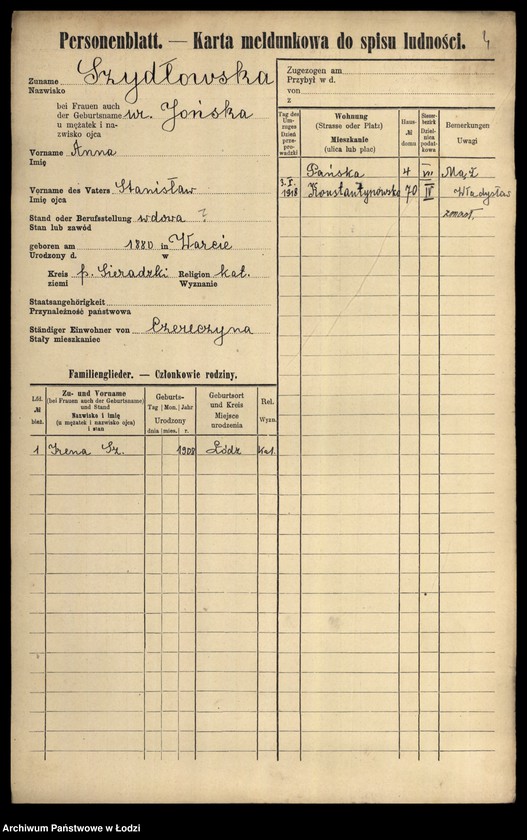 Personenblatt. — Karta meldunkowa do spisu ludności. 4
Zuname
Nazwisko
Szydłowska
bei Frauen auch
der Geburtsname
u mężatek i na-
zwisko ojca
ur. Jońska
Vorname Anna
Imię
Vorname des Vaters Stanisław
Imię ojca
Stand oder Berufsstellung wdowa ?
Stan lub zawód
geboren am 1880 in Warcie
Urodzony d. w
Kreis p. Sieradzki Religion kat.
ziemi Wyznanie
Staatsangehörigkeit
Przynależność państwowa
Ständiger Einwohner von
Stały mieszkaniec
Familienglieder. — Członkowie rodziny.
Lfd.
№
bież.
Zu- und Vorname
(bei Frauen auch der Geburtsname)
und Stand
Nazwisko i imię
(u mężatek i nazwisko ojca)
i stan
Geburts-
Tag Mon. Jahr
Urodzony
dnia mies. r.
Geburtsort
und Kreis
Miejsce
urodzenia
Rel.
Wyzn.
1 Irena Sz. 1908 Łódź kat.
Zugezogen am
Przybył w d.
von
z
Tag des
Um-
zuges
Dzień
prze-
prowadzki
Wohnung
(Strasse oder Platz)
Mieszkanie
(ulica lub plac)
Haus-
№
domu
Steuer-
bezirk
Dziel-
nica
podat-
kowa
Bemerkungen
Uwagi
Pańska 4 VII Mąż
3.I. 1918 Konstantynowska 70 II Władysław
zmarł.
Archiwum Państwowe w Łodzi